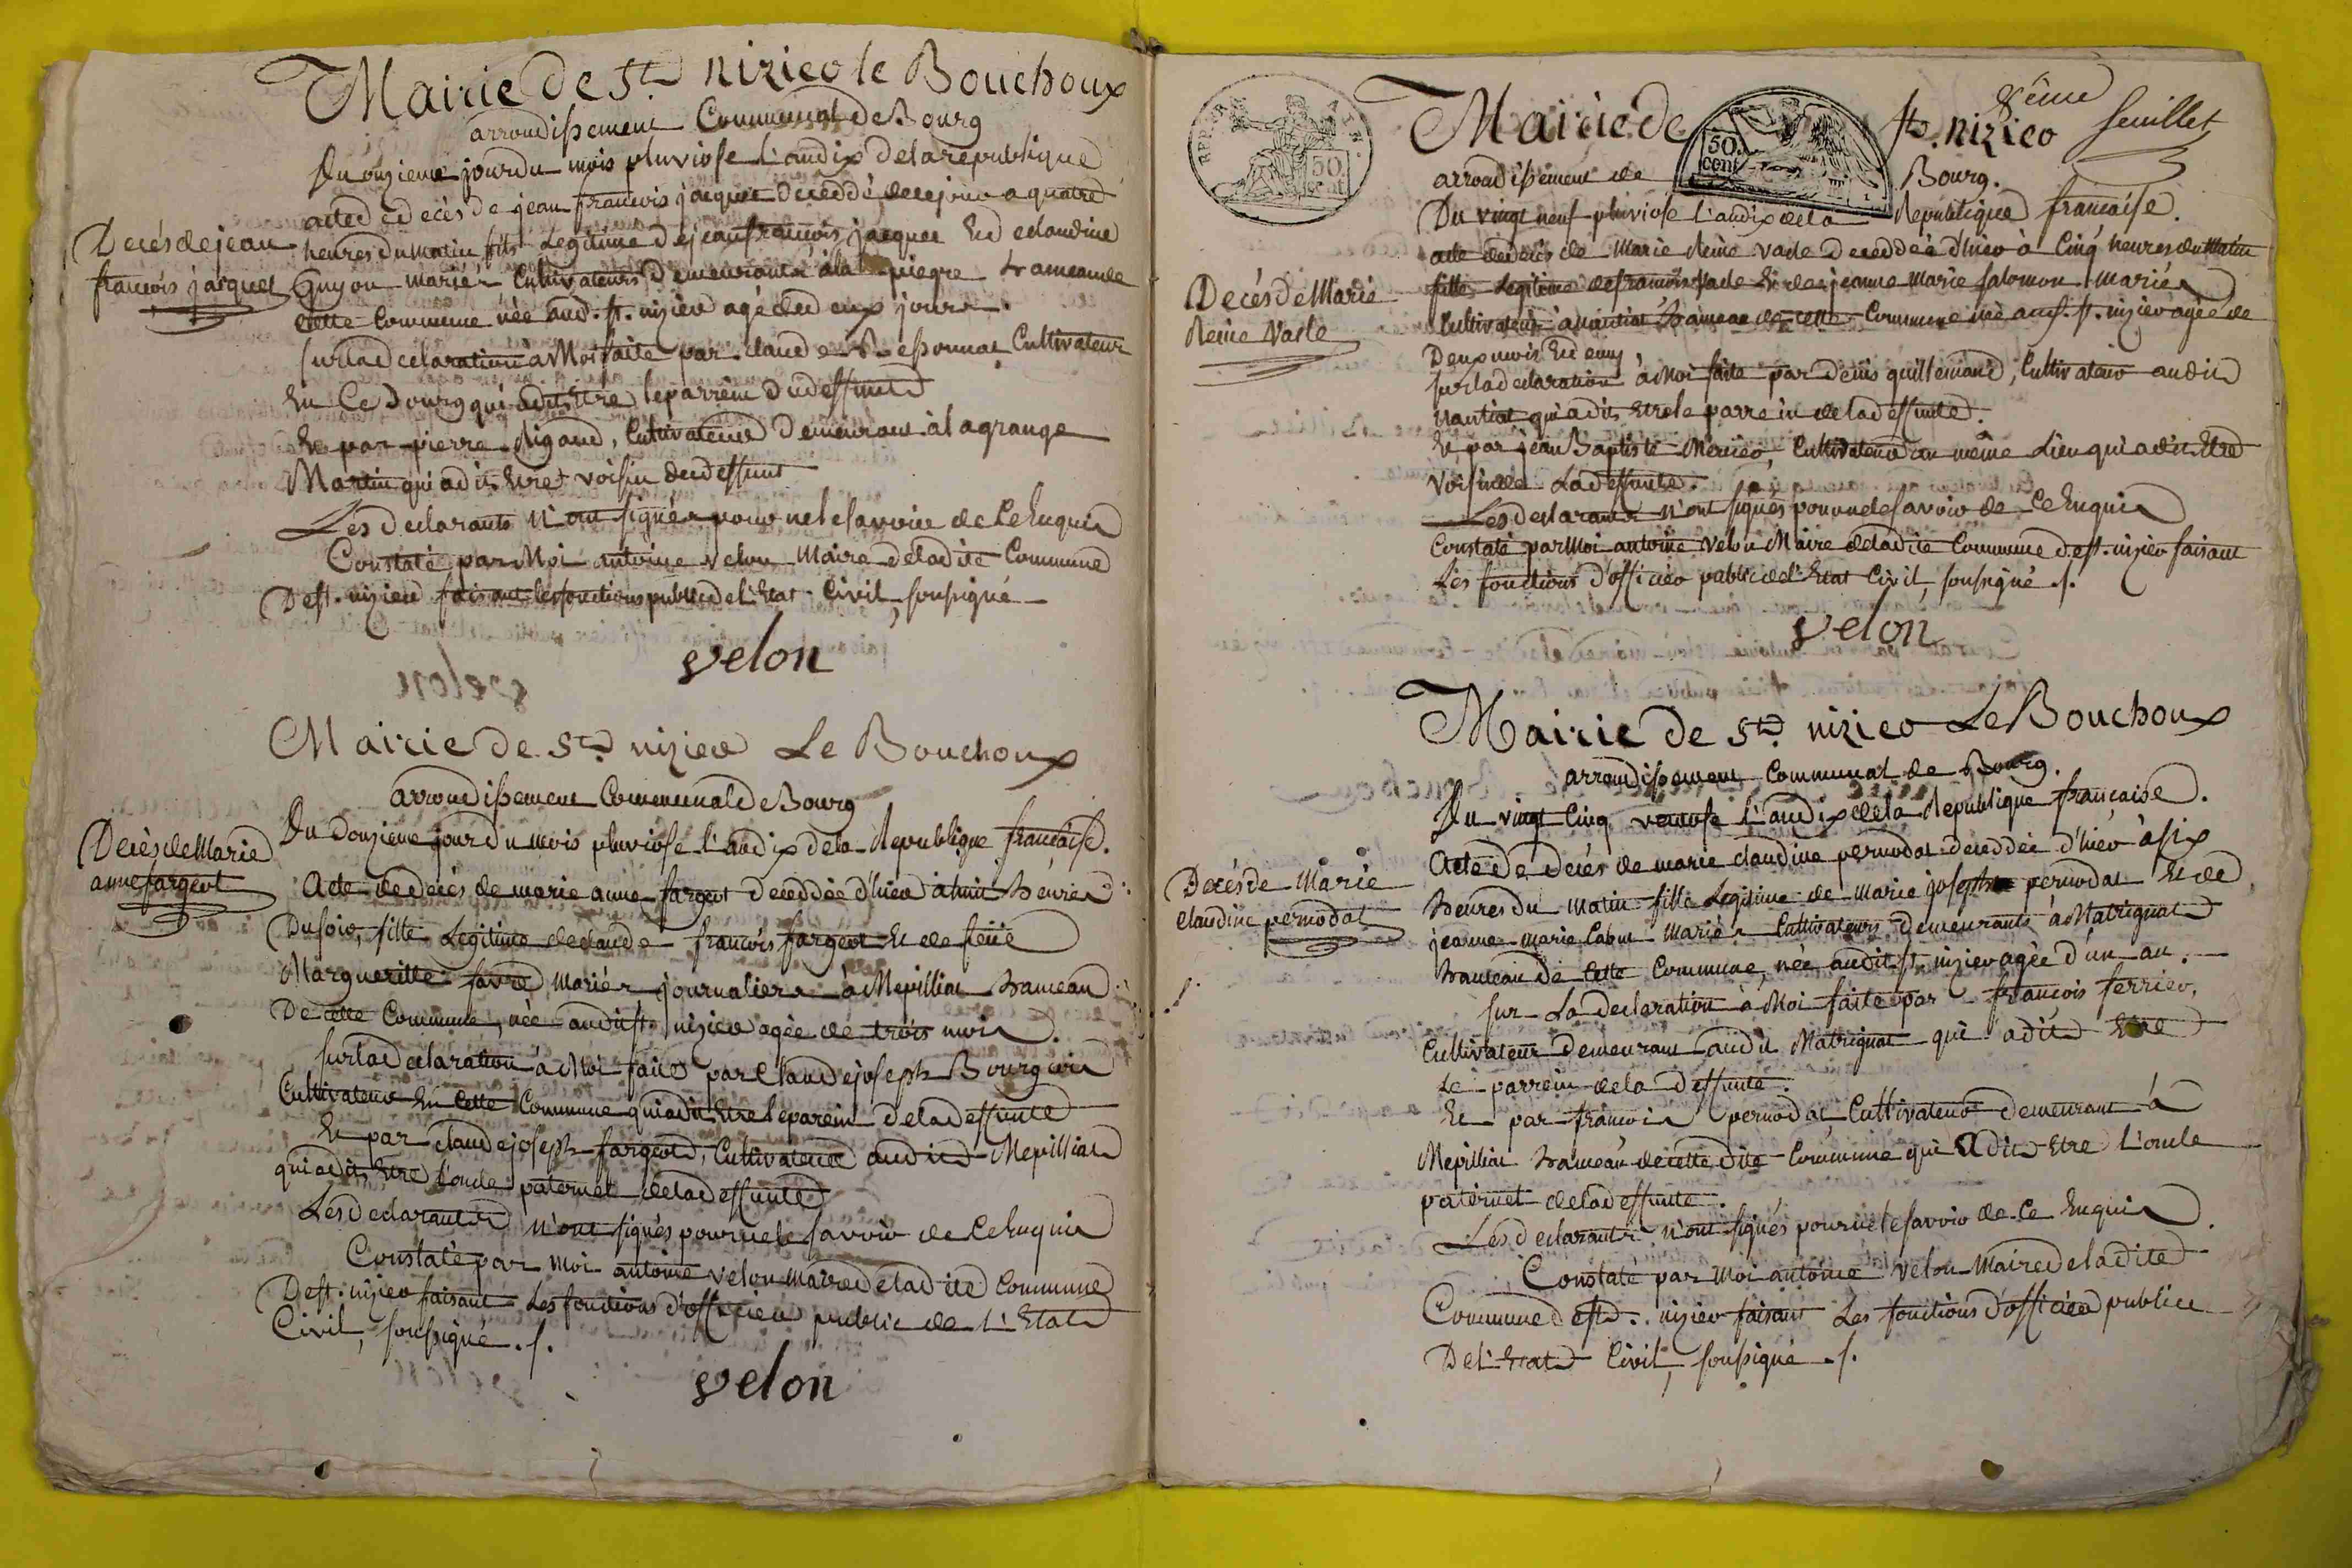 Mairie de St. nizier le Bouchoux
arrondissement Communal de Bourg
Du onzieme jour du mois pluviose l'an dix de la republique
acte de decès de jean francois jacquet deceddé de ce jour a quatre
Decès de jean
francois jacquet
heures du matin fils Legitime de jean francois jacquet Et de claudine
Guyon mariés Cultivateurs demeurants à la piegre hameau de
cette Commune née aud. st. nizier agé de deux jours.
sur la declaration a Moi faite par claude Cultivateur
En Ce Bourg qui a dit Etre le parrein du deffunt
Et par pierre Rigaud, Cultivateur demeurant à la grange
Martin qui a dit Etre voisin du deffunt
Les declarants N'ont signés pour ne le savoir de Ce Enquis
Constaté par Moi antoine velon Maire de la dite Commune
De st. nizier faisant les fonctions public de l'Etat Civil, soussigné
velon
Mairie de St. nizier Le Bouchoux
arrondissement Communal de Bourg
Decès de Marie
anne fargeot
Du douzieme jour du mois pluviose l'an dix de la Republique francaise.
Acte de decès de marie anne fargeot deceddée d'hier à huit heures
Du soir, fille Legitime de claude francois fargeot Et de feue
Margueritte favre mariés journaliers à Mepilliat hameau
De cette Commune, née audit st. nizier agée de trois mois.
sur la declaration à Moi faite par Claude joseph Bourgeois
Cultivateur En Cette Commune qui a dit Etre le parein de la deffunte
Et par claude joseph fargeot, Cultivateur audit Mepilliat
qui a dit Etre l'oncle paternel de la deffunte
Les declarants N'ont signés pour ne le savoir de Ce Enquis
Constaté par Moi antoine velon Maire de la dite Commune
De st. nizier faisant Les fonctions d'officier public de L'Etat
Civil, soussigné . /.
velon
REP. FRA
50 cent
8ème feuillet
Mairie de
50. cent
st. nizier
arrondissement de Bourg.
Decès de Marie
Reine Varle
Du vingt neuf pluviose l'an dix de la Republique francaise.
acte de decès de Marie Reine Varle deceddée d'hier à Cinq heures du Matin
fille Legitime de francois Varle Et de jeanne Marie salomon mariés
Cultivateurs à nantiat hameau de cette Commune née aud. st. nizier agée de
Deux mois Et demy,
sur la declaration à Moi faite par denis guillemand, Cultivateur audit
Nantiat qui a dit Etre le parrein de la deffunte.
Et par jean Baptiste Mercier, Cultivateur au même Lieu qui a dit Etre
Voisin de La deffunte.
Les declarants N'ont signés pour ne le savoir de Ce Enquis
Constaté par Moi antoine velon Maire de la dite Commune de st. nizier faisant
Les fonctions d'officier public de l'Etat Civil, soussigné . /.
velon
Mairie de St. nizier Le Bouchoux
arrondissement Communal de Bourg.
Decès de Marie
Claudine pernodat
Du vingt Cinq ventose l'an dix de la Republique francaise.
Acte de decès de marie claudine pernodat deceddée d'hier à six
heures du matin fille Legitime de Marie joseph pernodat Et de
jeanne marie Cabut Mariés Cultivateurs demeurants à Matrignat
hameau de Cette Commune, née audit st. nizier agée d'un an.
sur La declaration à Moi faite par francois ferrier,
Cultivateur demeurant audit Matrignat qui a dit Etre
Le parrein de la deffunte.
Et par francois pernodat, Cultivateur demeurant à
Mepilliat hameau de cette dite Commune qui a dit Etre L'oncle
paternel de la deffunte.
Les declarants N'ont signés pour ne le savoir de Ce Enquis
Constaté par Moi antoine velon Maire de la dite
Commune de st. nizier faisant Les fonctions d'officier public
De l'Etat Civil, soussigné . /.